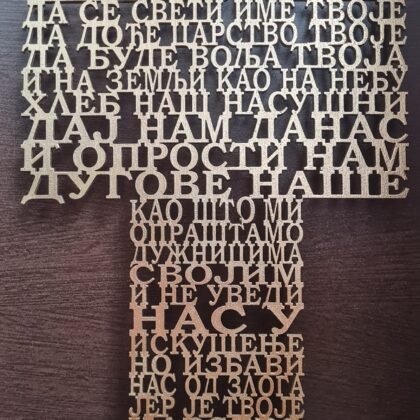 ДА СЕ СВЕТИ ИМЕ ТВОЈЕ
ДА ДОЂЕ ЦАРСТВО ТВОЈЕ
ДА БУДЕ ВОЉА ТВОЈА
И НА ЗЕМЉИ КАО НА НЕБУ
ХЛЕБ НАШ НАСУШНИ
ДАЈ НАМ ДАНАС
И ОПРОСТИ НАМ
ДУГОВЕ НАШЕ
КАО ШТО МИ
ОПРАШТАМО
ДУЖНИЦИМА
СВОЈИМ
И НЕ УВЕДИ
НАС У
ИСКУШЕЊЕ
НО ИЗБАВИ
НАС ОД ЗЛОГА
ЈЕР ЈЕ ТВОЈЕ